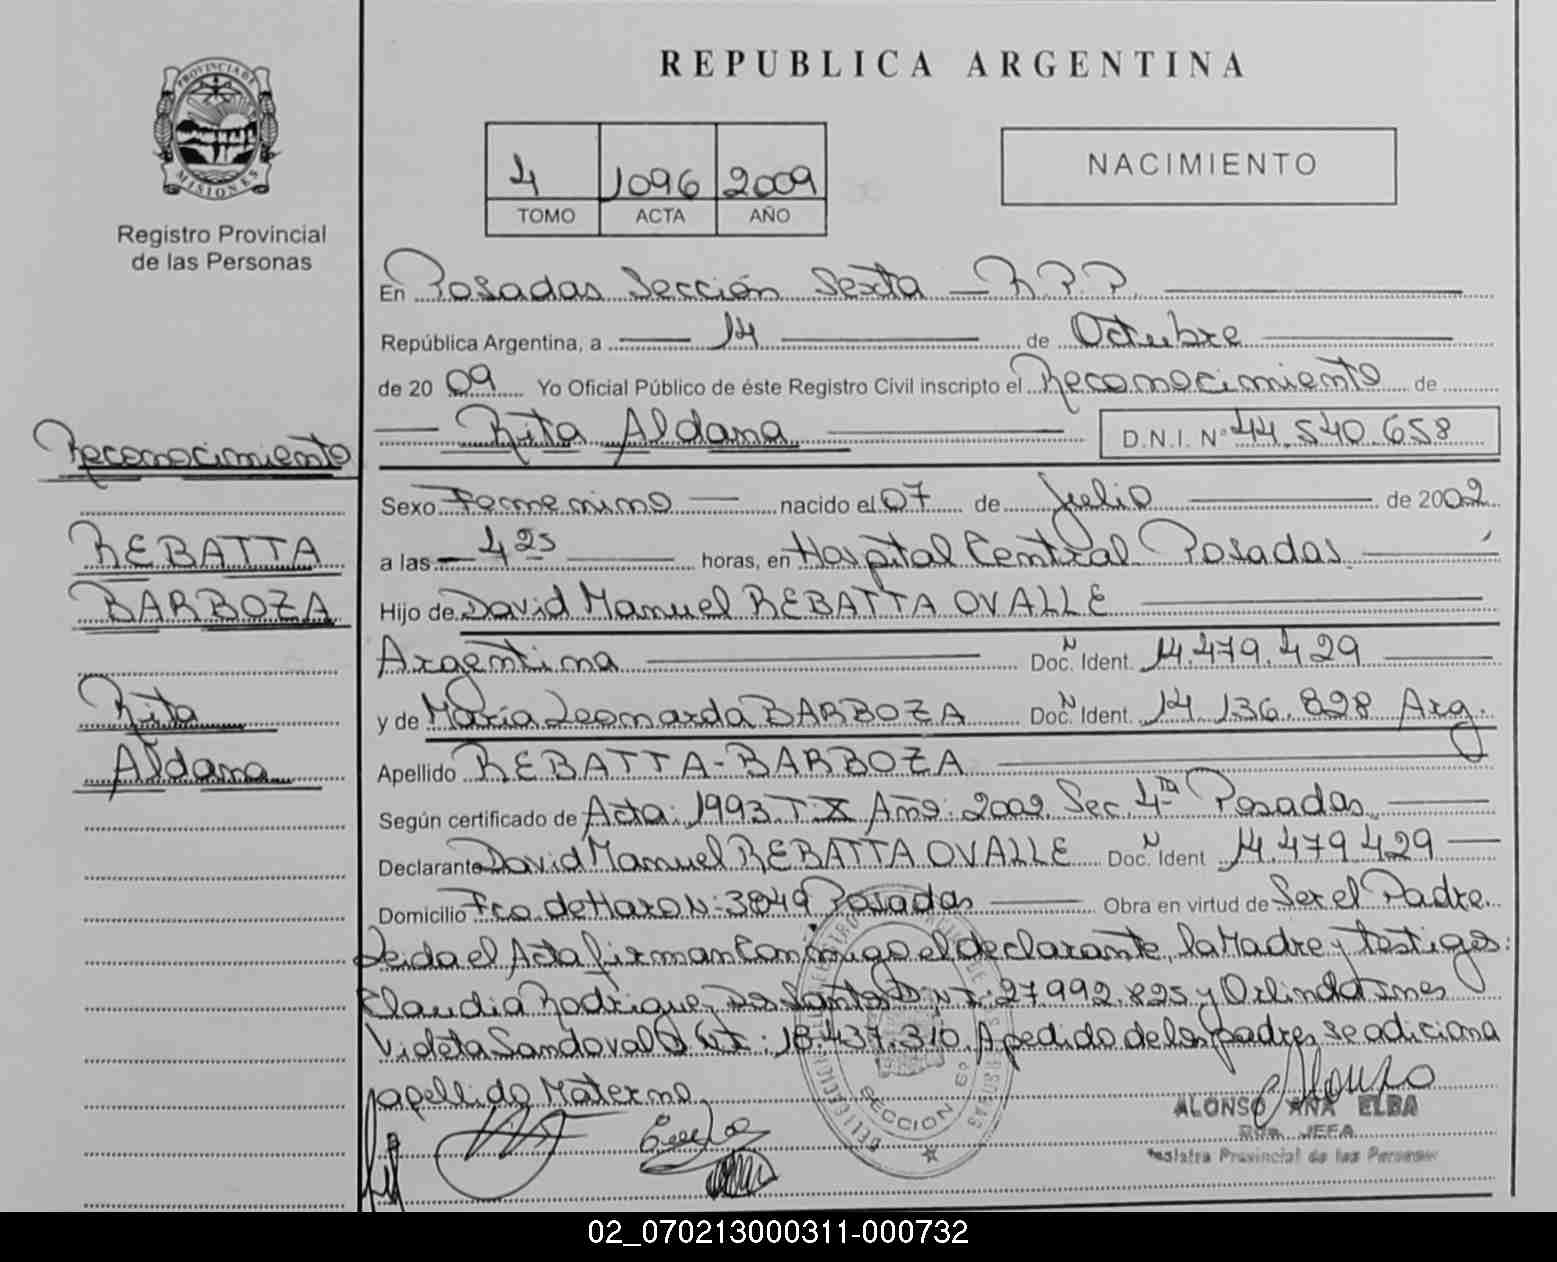 PROVINCIA DE
MISIONES
Registro Provincial
de las Personas
REPUBLICA ARGENTINA
4 1096 2009
TOMO ACTA AÑO
NACIMIENTO
En Posadas Sección Sexta — R.P.P.
República Argentina, a — 14 — de Octubre
de 20 09 Yo Oficial Público de éste Registro Civil inscripto el Reconocimiento de
Rita Aldana D.N.I. Nº 44.540.658
Sexo Femenino — nacido el 07 de Julio — de 2002
a las — 4 25 — horas, en Hospital Central Posadas
Hijo de David Manuel REBATTA OVALLE
Argentina — Doc. Ident. N 14.479.429
y de María Leonarda BARBOZA Doc. Ident. N 14.136.828 Arg.
Apellido REBATTA-BARBOZA
Según certificado de Acta: 1993 T X Año: 2002 Sec. 4ta Posadas
Declarante David Manuel REBATTA OVALLE Doc. Ident N 14.479.429
Domicilio Fco. de Haro N: 3849 Posadas — Obra en virtud de Ser el Padre
Leida el Acta firman Conmigo el declarante, la Madre y testigos:
Claudia Rodrigue Dos Santos D.N.I: 27.992.825 y Orlinda Ines
Violeta Sandoval D.N.I: 18.437.310. A pedido de los padres se adiciona
apellido Materno.
Reconocimiento
REBATTA
BARBOZA
Rita
Aldana
SECCION 6º
ALONSO ANA ELBA
JEFA
Registro Provincial de las Personas
02_070213000311-000732